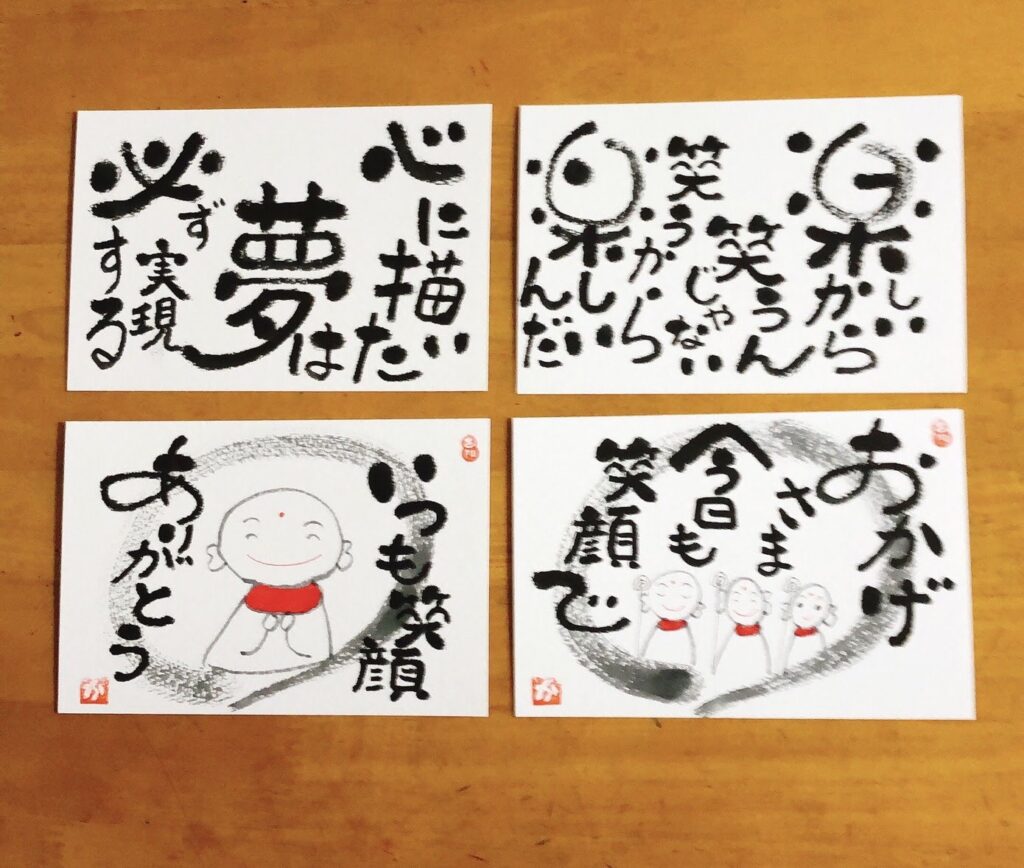 心に描いた
夢は
必ず
実現
する
楽しいから
笑うん
じゃない
笑うから
楽しい
んだ
いつも笑顔
ありがとう
おかげ
さま
今日も
笑顔
で
か